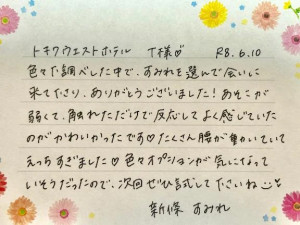 トキワウエストホテル T様♡ R8.6.10
色々な調べした中で、すみれを選んで会いに
来て下さり、ありがとうございました！あそこが
弱くて、触れただけで反応してよく感じていた
のがかわいかったです♡たくさん腰が動いていて
えっちすぎました♡色々オプションが気になって
いそうだったので、次回ぜひ試して下さいね
新條 すみれ